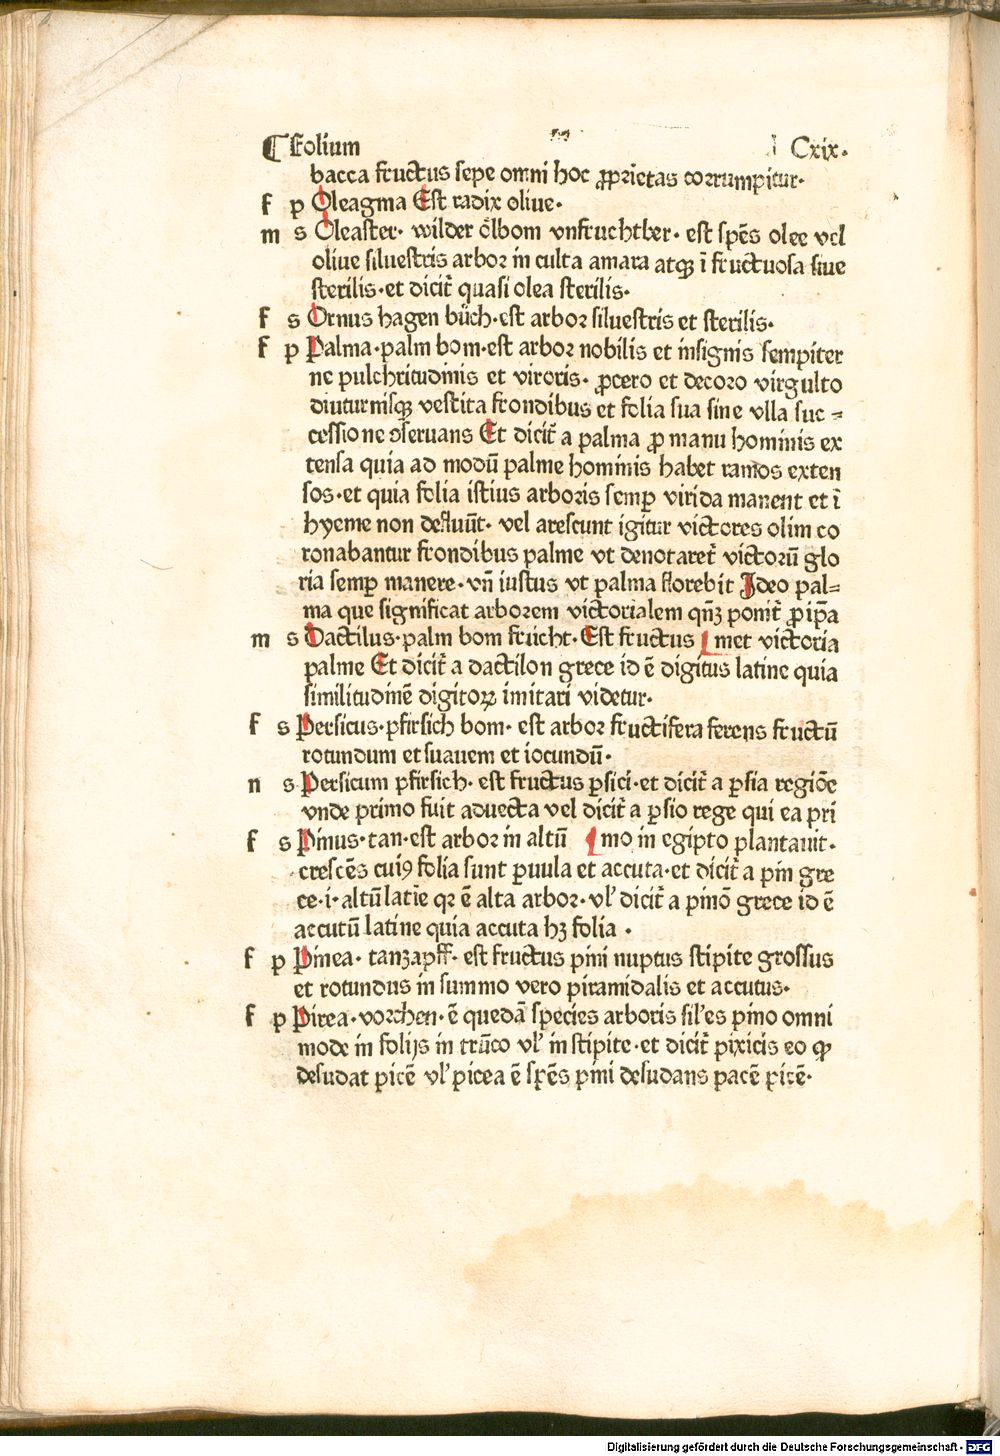 ¶ Folium Cxix.
bacca fructus sepe omni hoc ꝓprietas corrumpitur.
f p Oleagma Est radix oliue.
m s Oleaster. wilder oͤlbom vnfruchtber. est spēs olee vel
oliue siluestris arbor in culta amara atqꝫ ī fructuosa siue
sterilis. et dicit᷑ quasi olea sterilis.
f s Ornus hagen buͤch. est arbor siluestris et sterilis.
f p Palma. palm bom. est arbor nobilis et insignis sempiter
ne pulchritudinis et viroris. ꝓcero et decoro virgulto
diuturnisqꝫ vestita frondibus et folia sua sine vlla suc=
cessione ꝯseruans Et dicit᷑ a palma ꝓ manu hominis ex
tensa quia ad modū palme hominis habet ramos exten
sos. et quia folia istius arboris semꝑ virida manent et ī
hyeme non defluūt. vel arescunt igitur victores olim co
ronabantur frondibus palme vt denotaret᷑ victorū glo
ria semꝑ manere. vn̄ iustus vt palma florebit Ideo pal=
ma que significat arborem victorialem qn̄ꝫ ponit᷑ ꝓ ip̄a
m s Dactilus. palm bom frücht. Est fructus met victoria
palme Et dicit᷑ a dactilon grece id ē digitus latine quia
similitudinē digitoꝝ imitari videtur.
f s Persicus. pfirsich bom. est arbor fructifera ferens fructū
rotundum et suauem et iocundū.
n s Persicum pfirsich. est fructus ꝑsici. et dicit᷑ a ꝑsia regiōe
vnde primo fuit aduecta vel dicit᷑ a ꝑsio rege qui ea pri
f s Pinus. tan. est arbor in altū mo in egipto plantauit.
crescēs cuiꝯ folia sunt ꝑuula et accuta. et dicit᷑ a pin gre
ce. i. altū latīe qꝛ ē alta arbor. vl' dicit᷑ a pinō grece id ē
accutū latine quia accuta hꝫ folia.
f p Pinea. tanzapff. est fructus pini nuptus stipite grossus
et rotundus in summo vero piramidalis et accutus.
f p Pirea. vorchen. ē quedā species arboris sil'es pino omni
mode in folijs in trūco vl' in stipite. et dicit᷑ pixicis eo ꝙ
desudat picē vl' picea ē spēs pini desudans pacē picē.
Digitalisierung gefördert durch die Deutsche Forschungsgemeinschaft - DFG